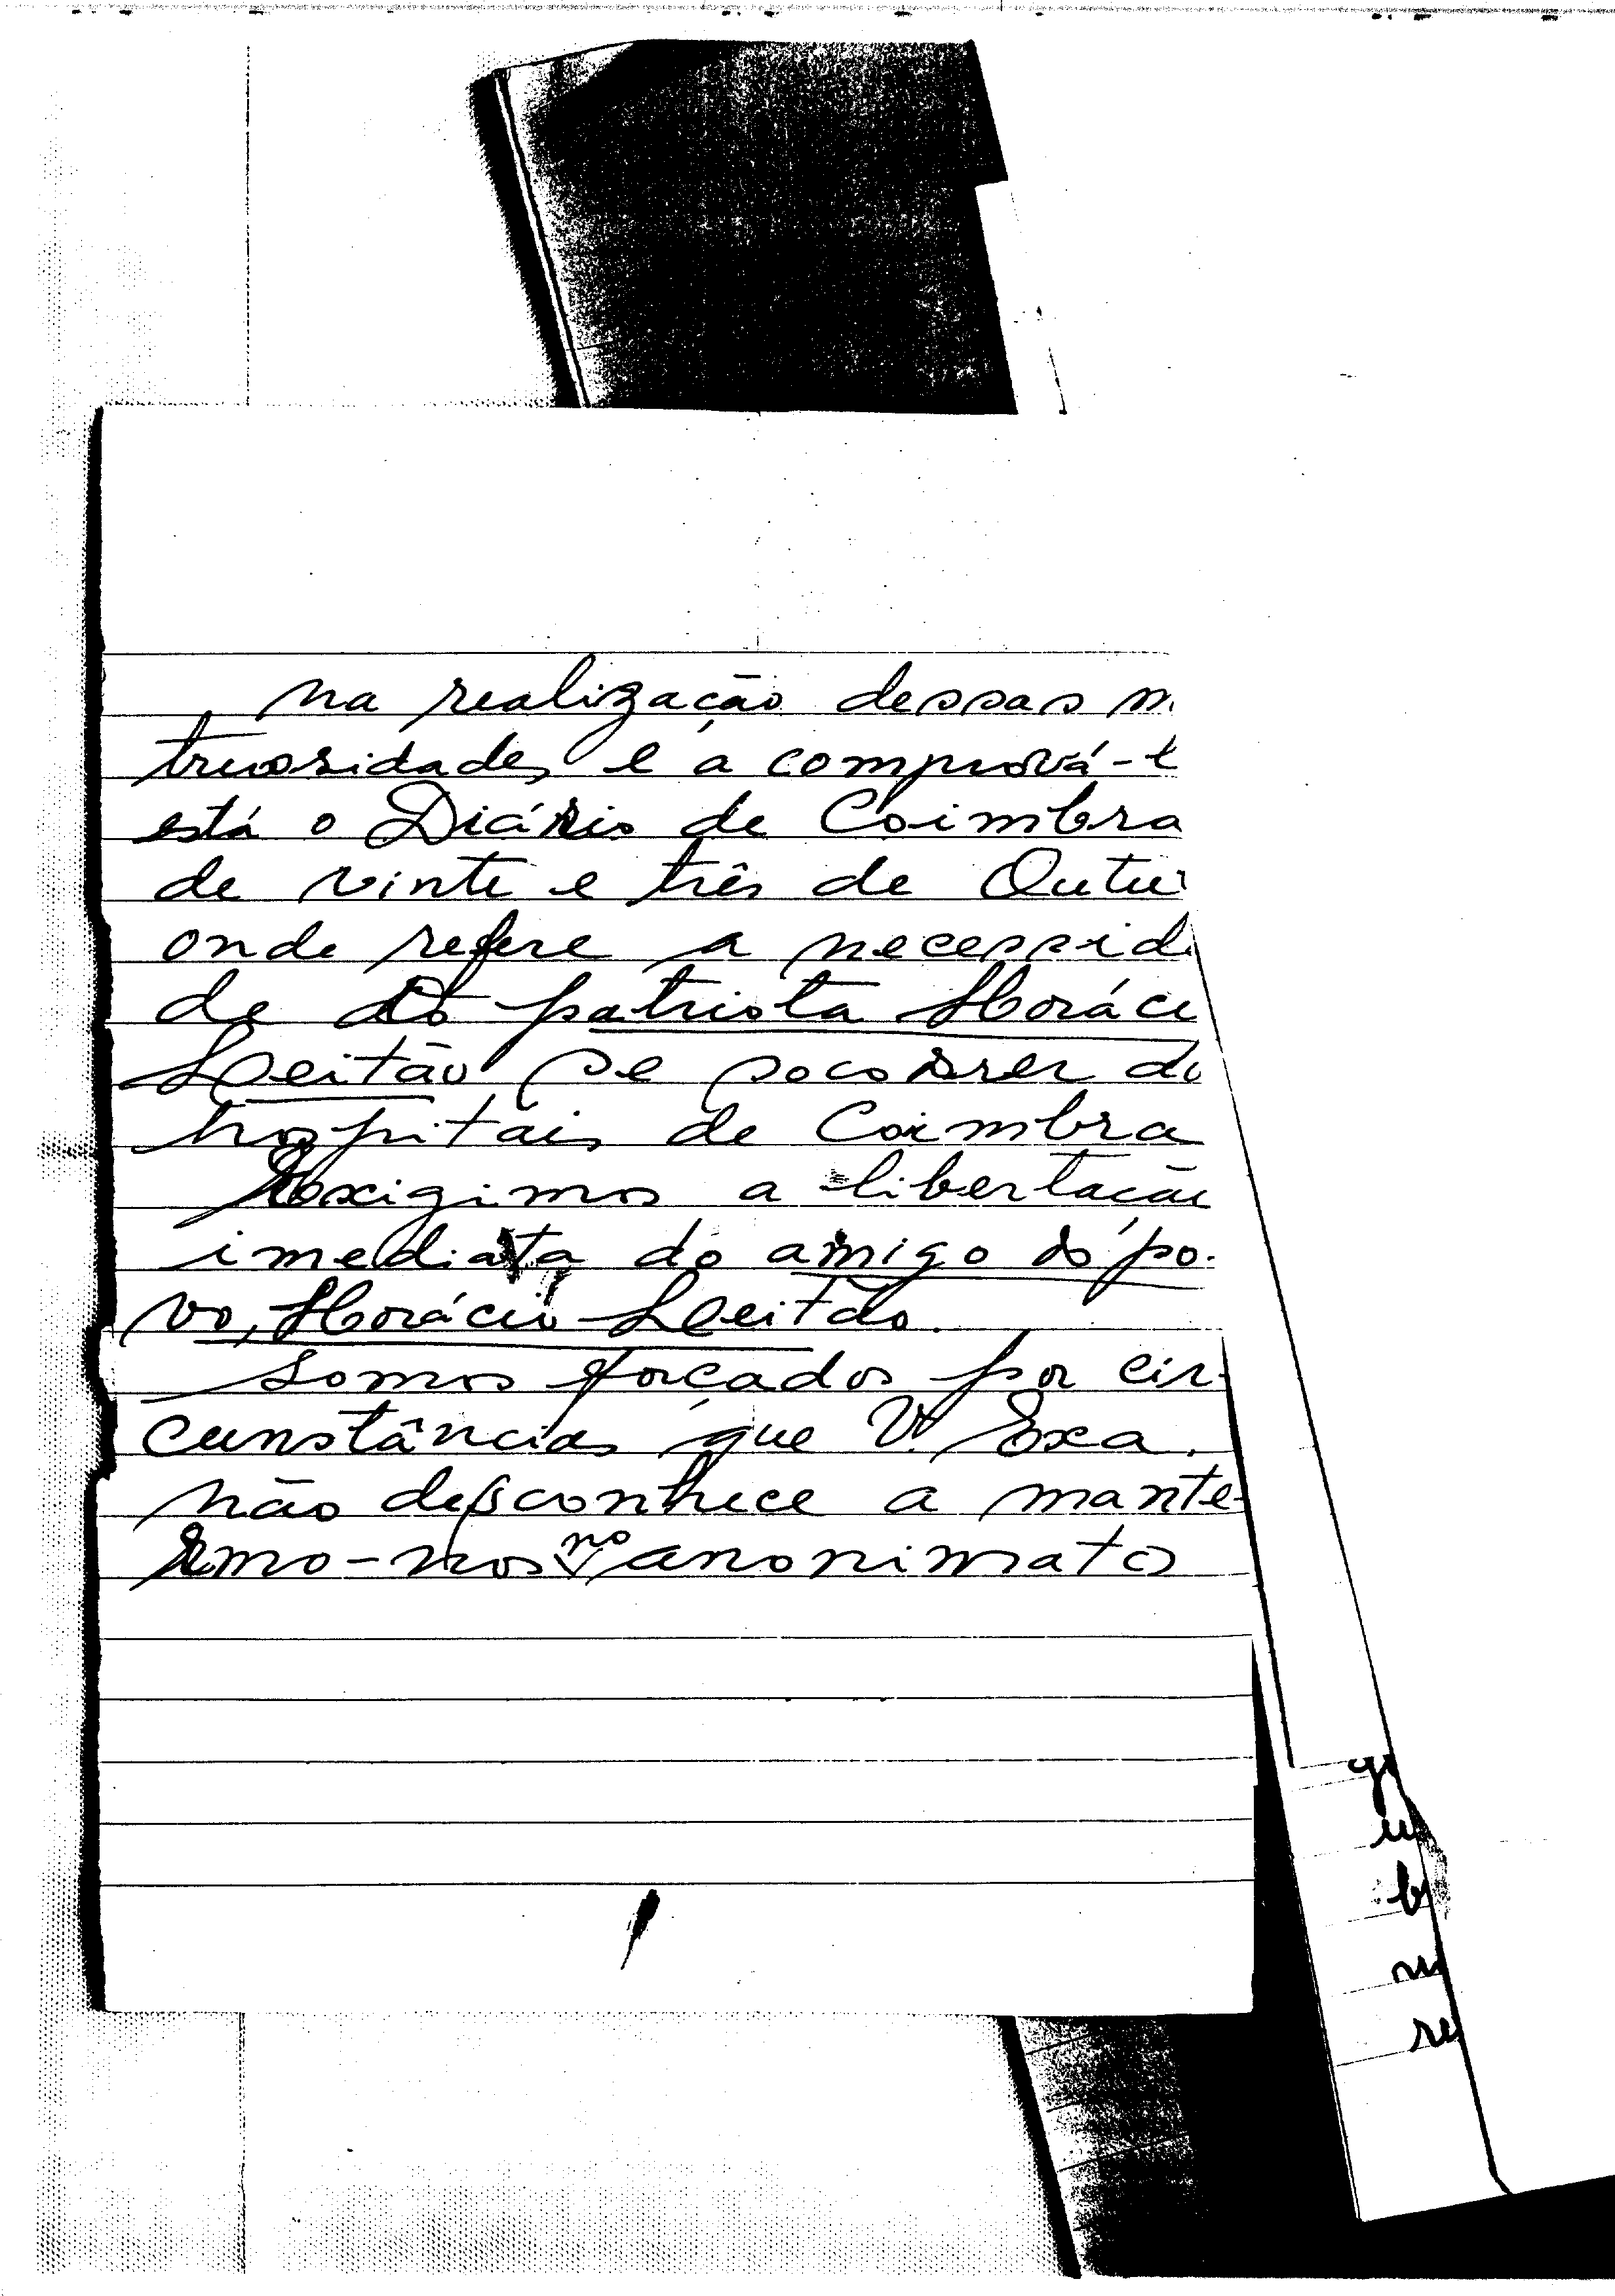 na realização dessas m
truosidades e a comprová-l
está o Diário de Coimbra
de vinte e três de Outu
onde refere a necessid
de do patriota Horáci
Leitão se socorrer do
hospitais de Coimbra
Exigimos a libertação
imediata do amigo do po-
vo, Horácio Leitão.
Somos forçados por cir-
cunstâncias que V. Exa.
não desconhece a mante-
rmo-nos no anonimato
b
re